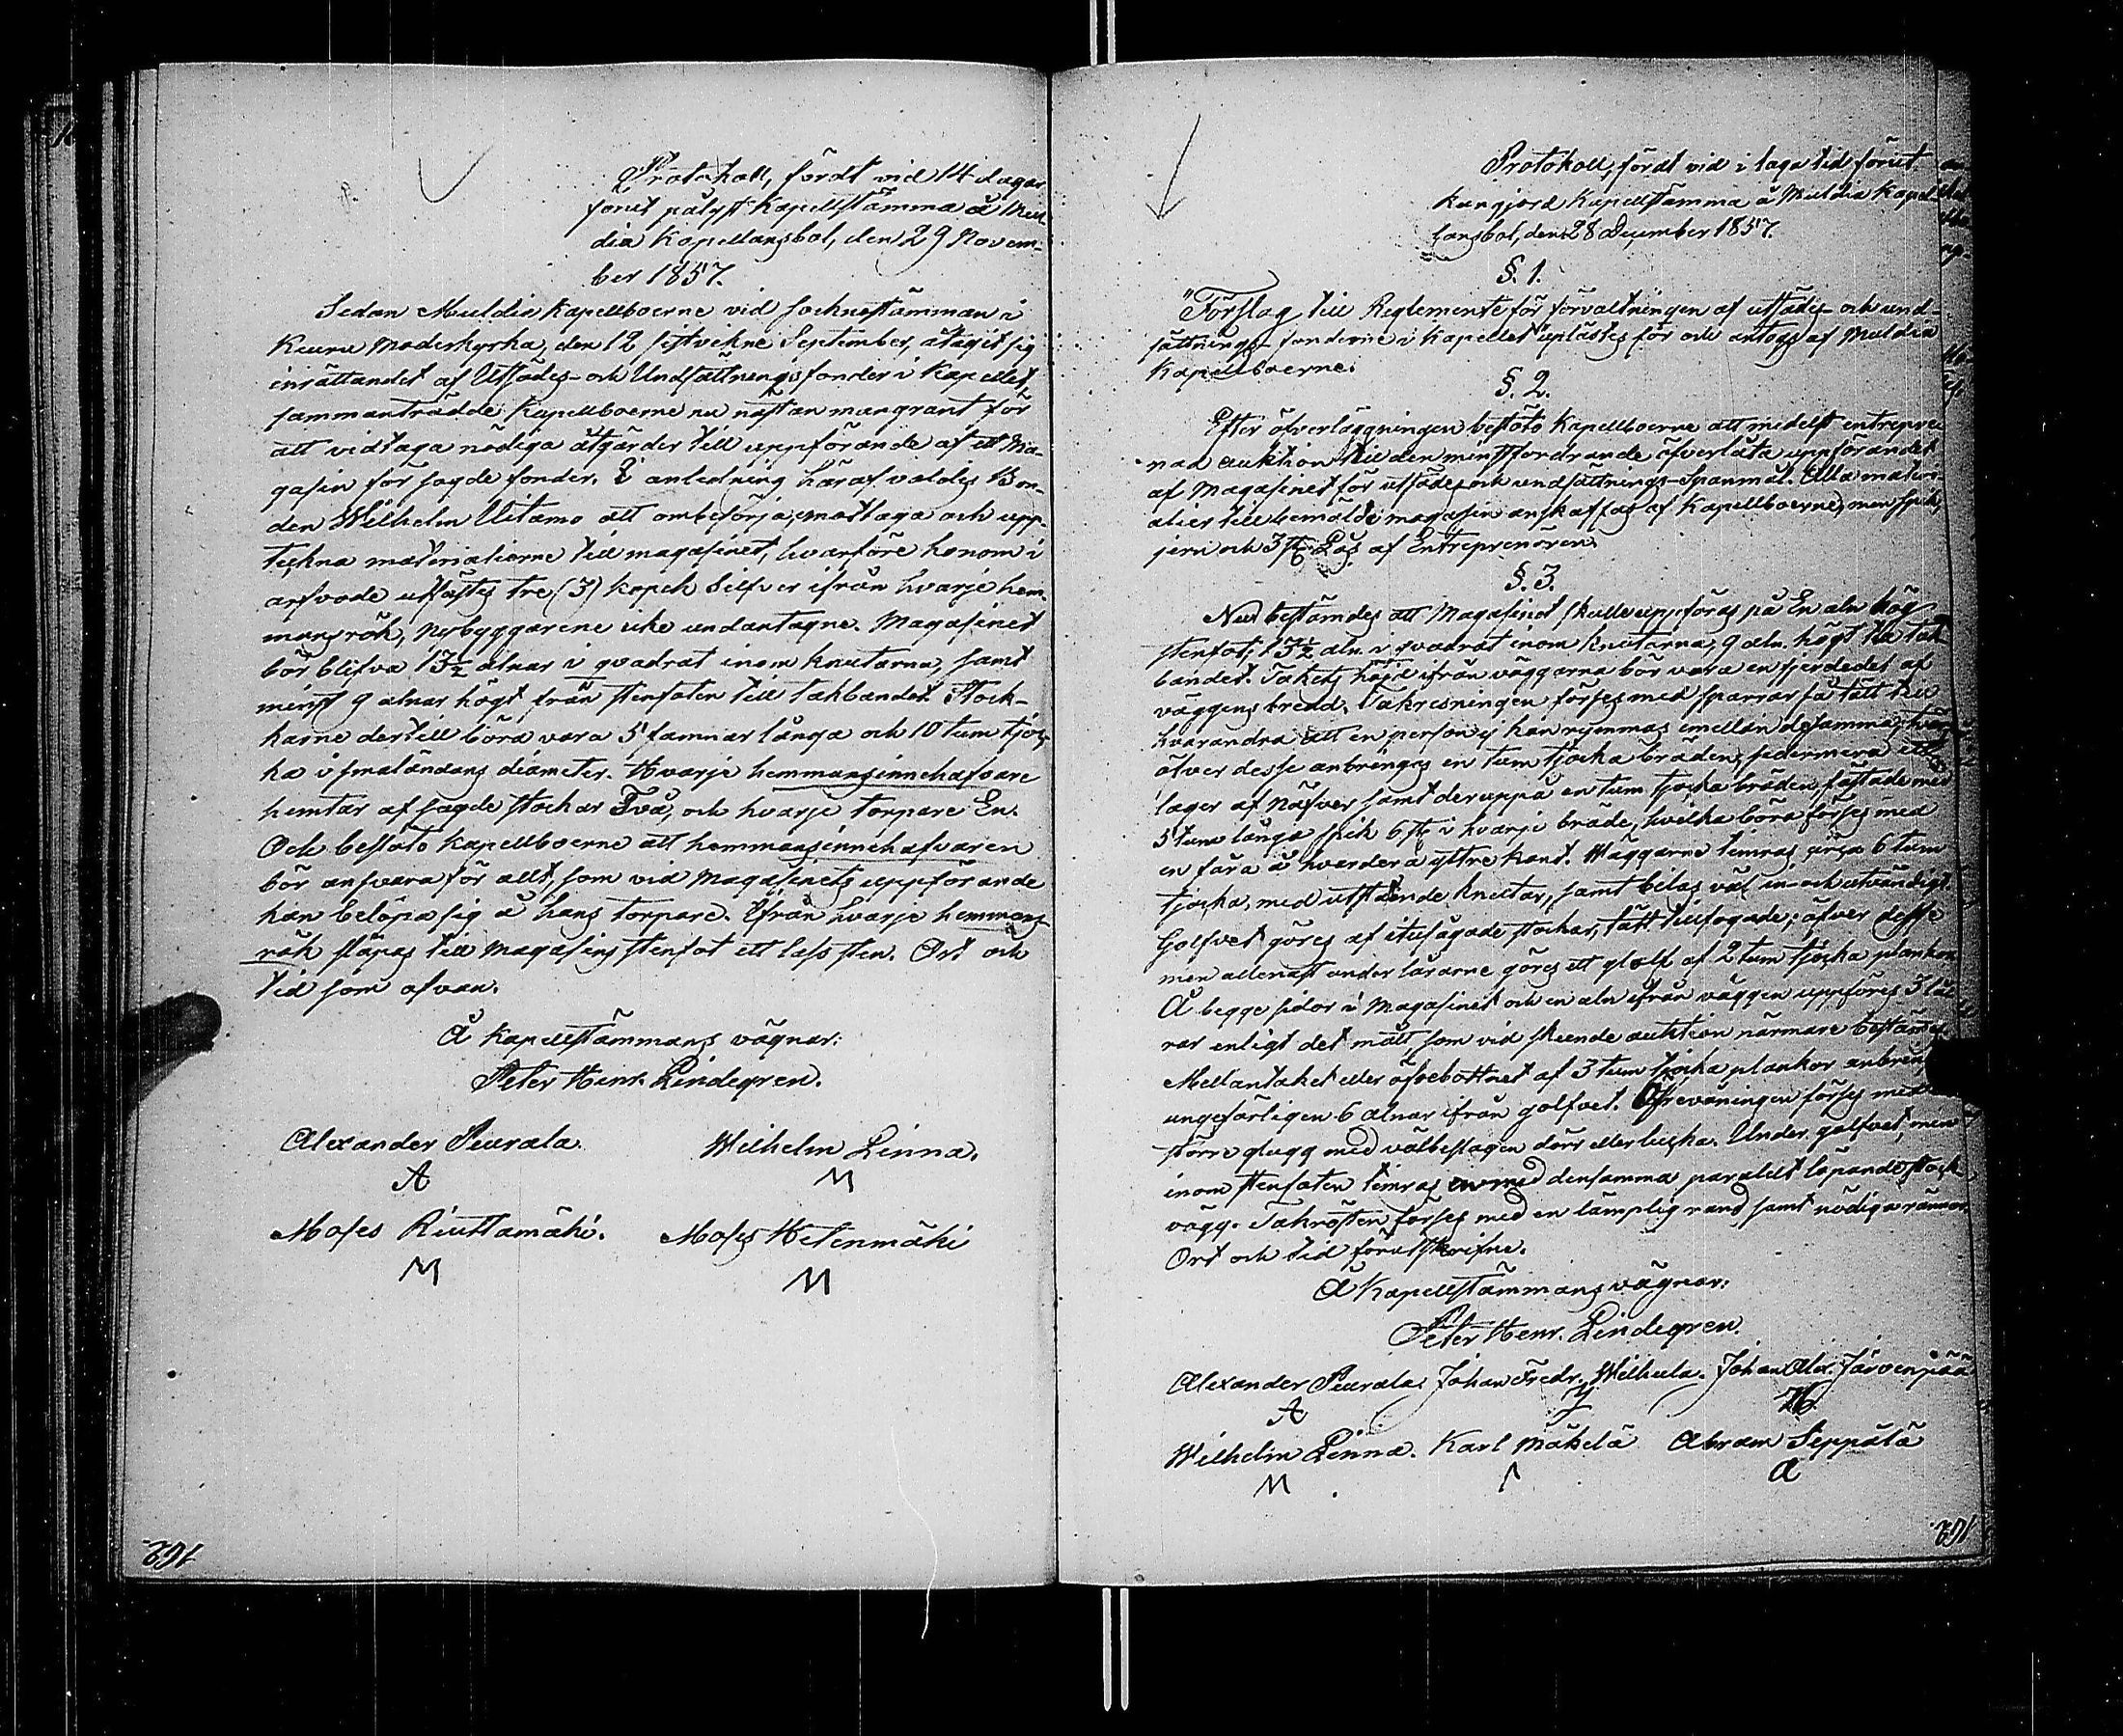 Protokoll, fördt vid 14 dagar
förut pålyst Kapellstämma å Mul
dia Kapellansbol, den 29 Novem-
ber 1857.
Sedan Muldia Kapellboerne vid sochnestämman i
Keuru Moderkyrka, den 12 sistvikne September, åtagit sig
inrättandet af Utsädes- och Undsättningsfonder i Kapellet,
sammanträdde Kapellboerne nu nästan mangrant för
att vidtaga nödiga åtgärder till uppförande af ett Ma-
gasin för sagde fonder. I anledning häraf valdes Bon-
den Wilhelm Uitamo att ombesörja, mottaga och upp-
teckna materialierne till magasinet, hvarföre honom i
arfvode utfästes tre (3) kopek Silfver ifrån hvarje hem-
mansrök, nybyggarene icke undantagne. Magasinet
bör blifva 13½ alnar i qvadrat inom knutarna, samt
minst 9 alnar högt från stenfoten till takbandet. Stock-
karne dertill böra vara 5 famnar långa och 10 tum tjoc-
ka i smaländans diameter. Hvarje hemmansinnehafvare
hemtar af sagde stockar Två, och hvarje torpare En.
Och beslöto Kapellboerne att hemmansinnehafvaren
bör ansvara för allt, som vid Magasinets uppförande
kan belöpa sig å hans torpare. Ifrån hvarje hemmans
rök släpas till Magasins stenfot ett lass sten. Ort och
tid som ofvan.
Å Kapellstämmans vägnar:
Peter Henr. Lindegren.
Alexander Peurala. Wilhelm Linna.
A M
Moses Riuttamäki. Moses Hetenmäki
M M
162.
Protokoll, fördt vid i laga tid förut
kungjord Kapellstämma å Muldia Kapel
lansbol, den 28 December 1857.
§. 1.
"Förslag till Reglemente för förvaltningen af utsädes- och und-
sättnings-fonderne i Kapellet" uplästes för och antogs af Muldia
Kapellboerne.
§. 2.
Efter öfverläggningen beslöto Kapellboerne att medelst entrepre
nad auktion till den minstfordrande öfverlåta uppförandet
af Magasinet för utsädes och undsättnings-Spanmål. Alla materi-
alier till bemälde magasin anskaffas af Kapellboerne, men spik,
jern och 3 st. Lås af Entreprenören.
§. 3.
Nu bestämdes att Magasinet skulle uppföras på En aln hög
stenfot; 13½ aln. i qvadrat inom knutarna, 9 aln. högt till tak
bandet. Takets höjd ifrån väggarna bör vara en fjerdedel af
väggens bredd. Takresningen förses med sparrar så tätt till
hvarandra att en person ej kan rymmas emellan desamma;
öfver desse anbringas en tum tjocka bräden, sedermera ett
lager af Näfver samt deruppå en tum tjocka bräden fästade med
5 tum långa spik 6 st. i hvarje bräde, hvilka böra förses med
en fåra å hvardera yttre kant. Väggarne timras circa 6 tum
tjocka, med utstående knutar, samt bilas väl in- och utvändigt.
Golfvet göres af itusågade stockar, tätt tillfogade; öfver desse
men allenast under lårarne göres ett golf af 2 tum tjocka plankor.
Å begge sidor i Magasinet och en aln ifrån väggen uppföres 3 lå
rar enligt det mått, som vid skeende auktion närmare bestämmes.
Mellantaket eller öfvebottnet af 3 tum tjocka plankor
ungefärligen 6 alnar ifrån golfvet. Öfrevåningen förses med
större glugg med välbeslagen dörr eller lucka. Under golfvet, men
inom stenfoten timras med densamma paralelt löpande stock
vägg. Takrösten förses med en lämplig rand samt nödiga rännor.
Ort och tid förutskrifne.
Å Kapellstämmans vägnar:
Peter Henr. Lindegren.
Alexander Peurala. Johan Fredr. Wilhula. Johan Alex. Järvenpää
A
Wilhelm Linna. Karl Mäkelä Abram Seppälä
M A
162.